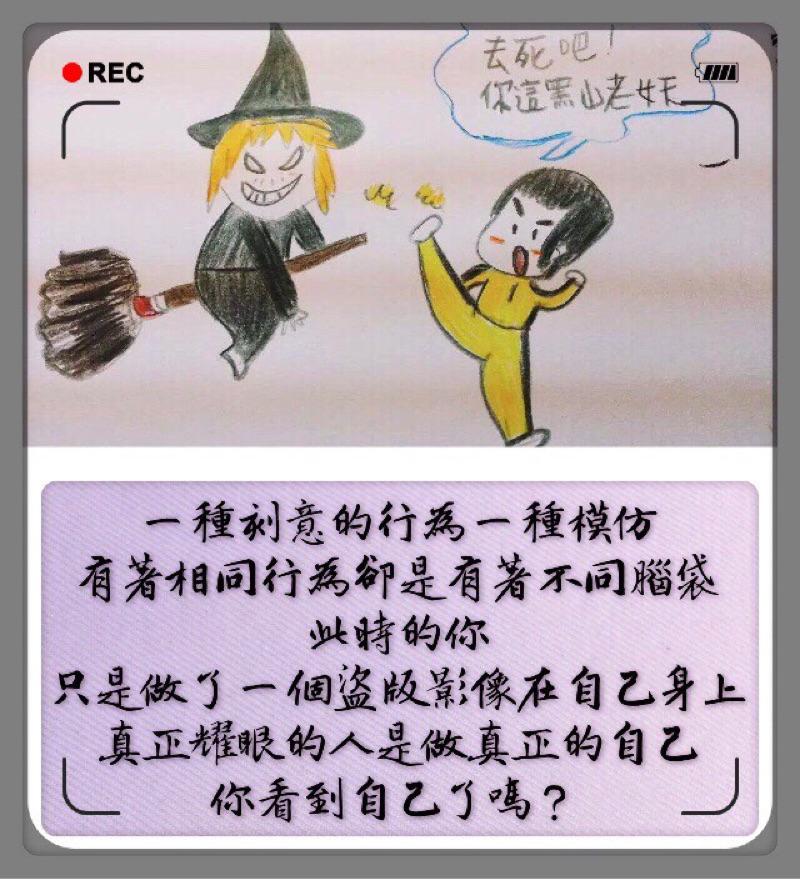 REC
去死吧！
你這黑山老妖
一種刻意的行為一種模仿
有著相同行為卻是有著不同腦袋
此時的你
只是做了一個盜版影像在自己身上
真正耀眼的人是做真正的自己
你看到自己了嗎？